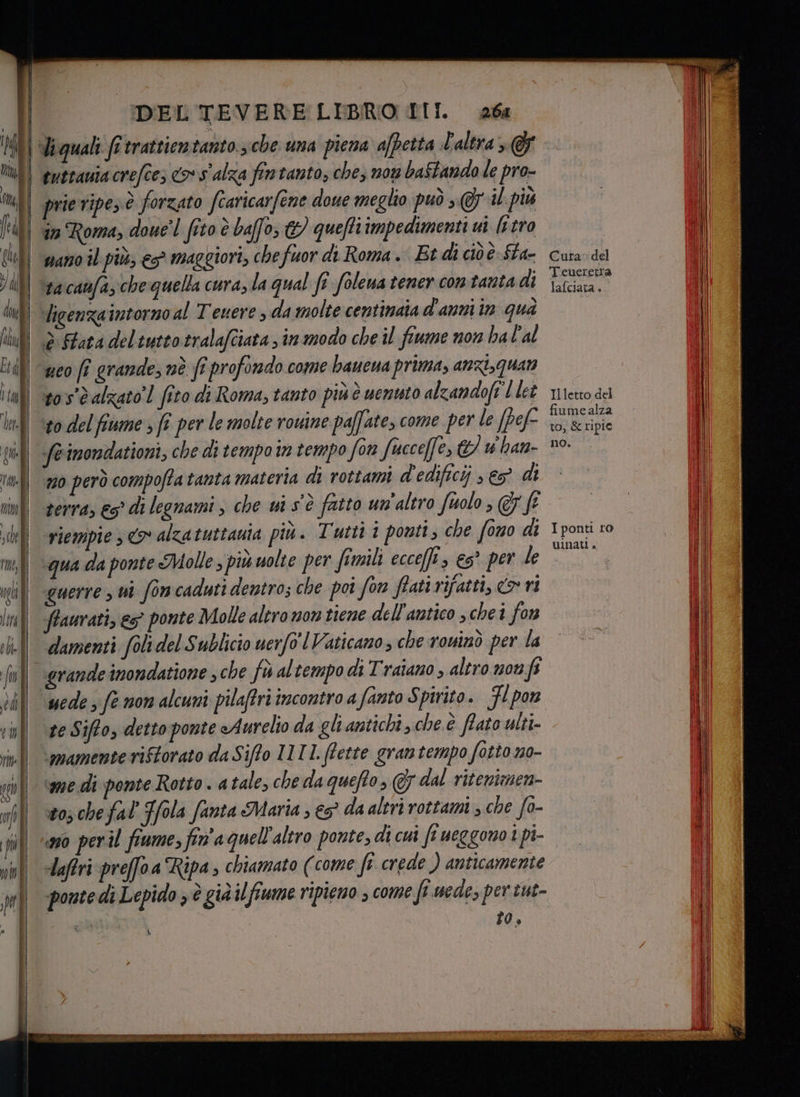 DEL TEVERE LIBRO III. 261
li quali si trattien tanto, che una piena aspetta l'altra, &
tuttavia cresce, & s'alza fin tanto, che, non bastando le pro-
prie ripe, è forzato scaricarsene doue meglio può, & il più
in Roma, doue'l sito è basso, & questi impedimenti ui si tro
uano il più, & maggiori, che fuor di Roma. Et di ciò è sta-
ta causa, che quella cura, la qual si soleua tener con tanta di
ligenza intorno al Teuere, da molte centinaia d'anni in quà
è stata del tutto tralasciata, in modo che il fiume non ha l'al
ueo sì grande, nè sì profondo come haueua prima, anzi, quan
to s'è alzato'l sito di Roma, tanto più è uenuto alzandosi'l let
to del fiume, sì per le molte rouine passate, come per le spes-
se inondationi, che di tempo in tempo son successe, & u'han-
no però composta tanta materia di rottami d'edificij, & di
terra, & di legnami, che ui s'è fatto un'altro suolo, & si
riempie, & alza tuttauia più. Tutti i ponti, che sono di
qua da ponte Molle, più uolte per simili eccessi, & per le
guerre, ui son caduti dentro; che poi son stati rifatti, & ri
staurati, & ponte Molle altro non tiene dell'antico, che i fon
damenti soli del Sublicio uerso'l Vaticano, che rouinò per la
grande inondatione, che fù al tempo di Traiano, altro non si
uede, se non alcuni pilastri incontro a santo Spirito. Il pon
te Sisto, detto ponte Aurelio da gli antichi, che è stato ulti-
mamente ristorato da Sisto IIII. stette gran tempo sotto no-
me di ponte Rotto. a tale, che da questo, & dal ritenimen-
to, che fa l' Isola santa Maria, & da altri rottami, che so-
no per il fiume, fin'a quell'altro ponte, di cui si ueggono i pi-
lastri presso a Ripa, chiamato (come si crede) anticamente
ponte di Lepido, è già il fiume ripieno, come si uede, per tut-
to,
Cura del
Teuere tra
lasciata.
Il letto del
fiume alza
to, & ripie
no.
I ponti ro
uinati.